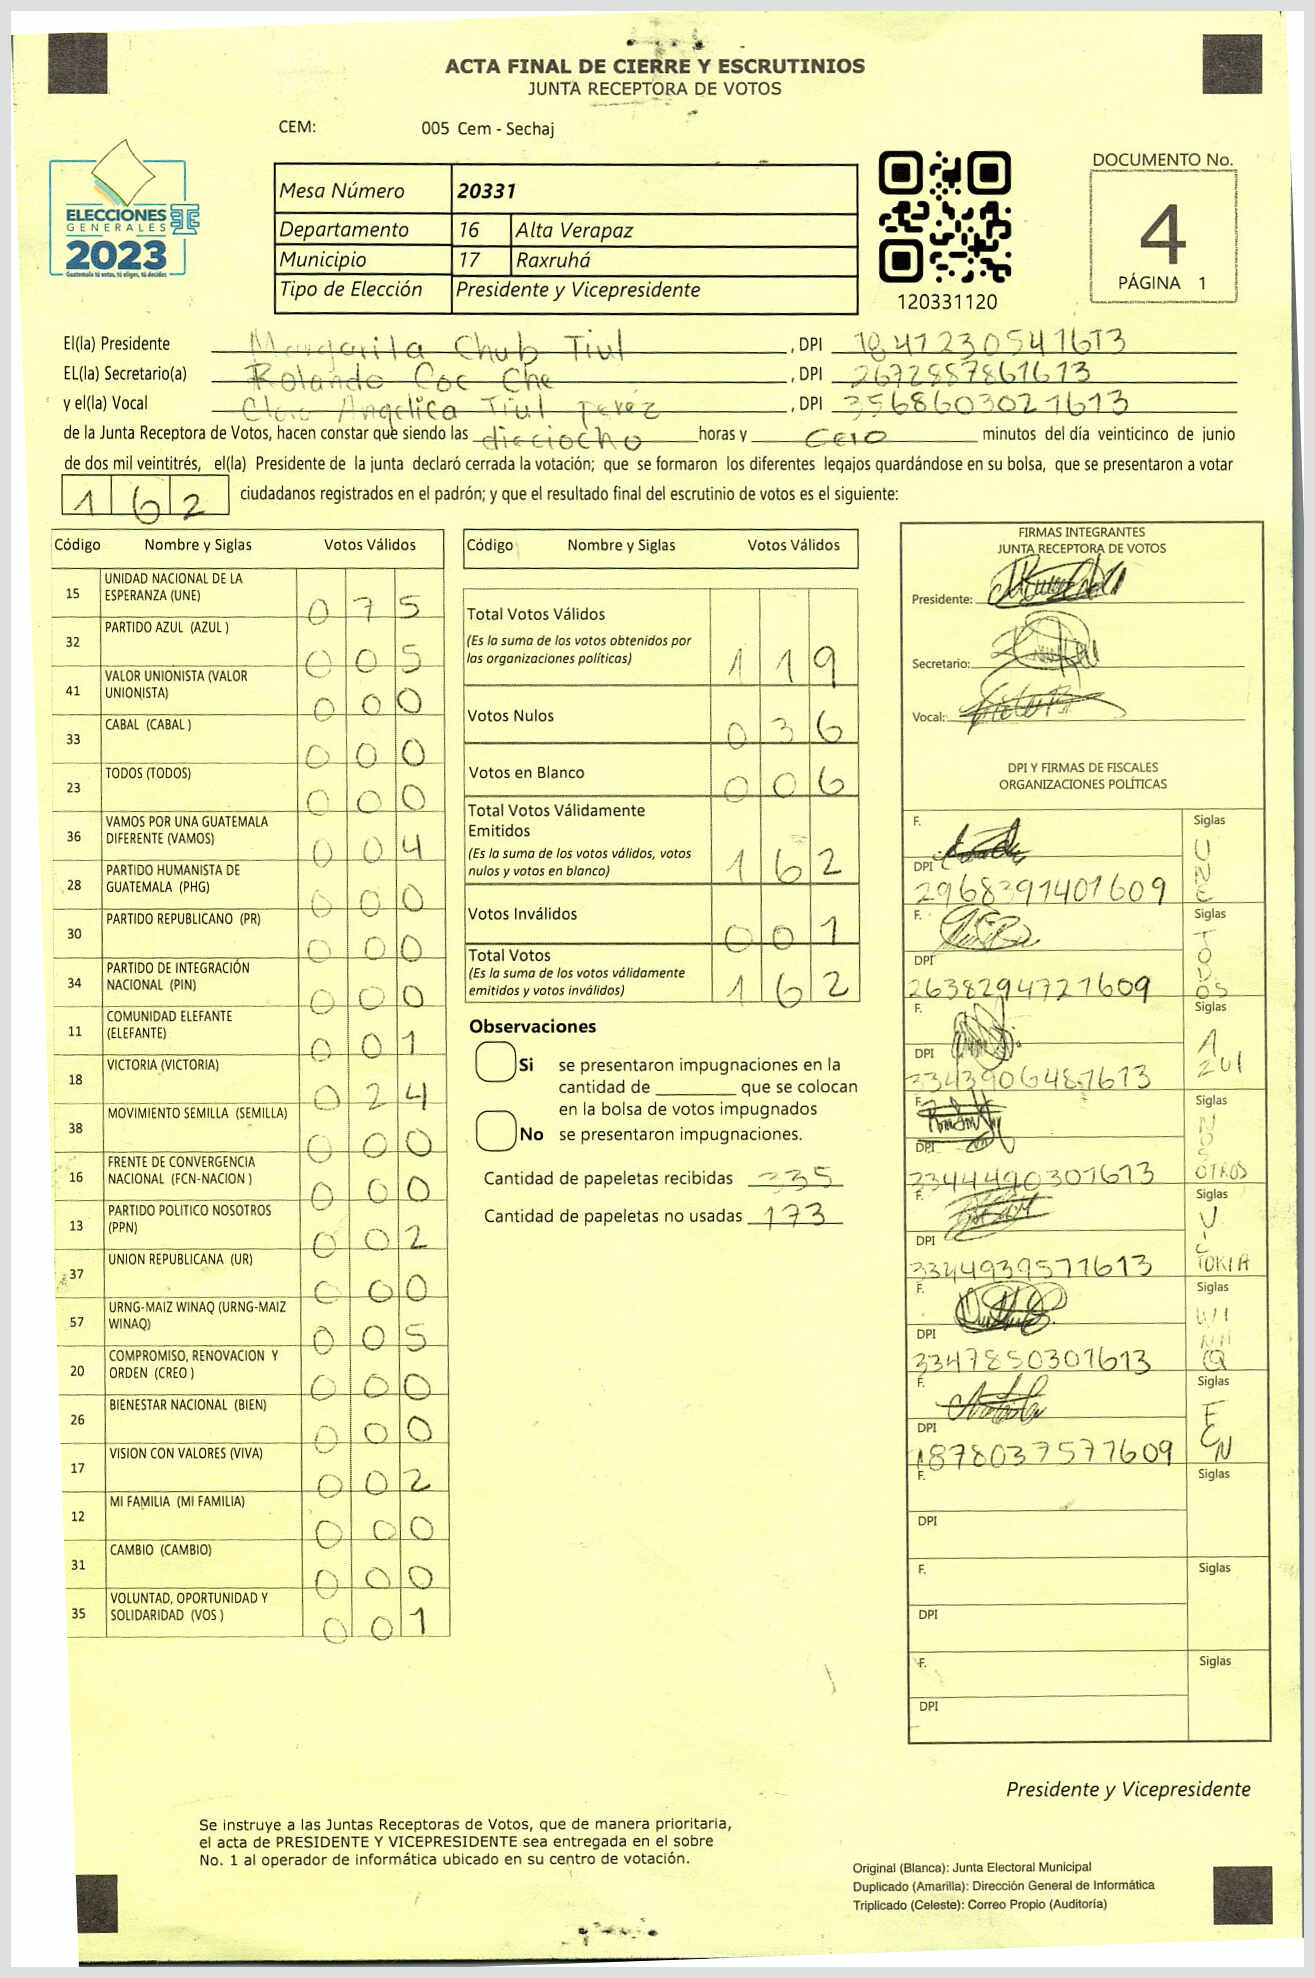 ACTA FINAL DE CIERRE Y ESCRUTINIOS
JUNTA RECEPTORA DE VOTOS
CEM: 005 Cem - Sechaj
ELECCIONES
GENERALES
2023
Guatemala tú votas, tú eliges, tú decides
Mesa Número 20331
Departamento 16 Alta Verapaz
Municipio 17 Raxruhá
Tipo de Elección Presidente y Vicepresidente
120331120
DOCUMENTO No.
4
PÁGINA 1
El(la) Presidente Margarita Chub Tiul , DPI 1841230541613
EL(la) Secretario(a) Rolando Coc Che , DPI 2672887861613
y el(la) Vocal Angelica Tiul perez , DPI 3568603021613
de la Junta Receptora de Votos, hacen constar que siendo las dieciocho horas y cero minutos del día veinticinco de junio
de dos mil veintitrés, el(la) Presidente de la junta declaró cerrada la votación; que se formaron los diferentes legajos quardándose en su bolsa, que se presentaron a votar
162 ciudadanos registrados en el padrón; y que el resultado final del escrutinio de votos es el siguiente:
Código Nombre y Siglas Votos Válidos
15 UNIDAD NACIONAL DE LA ESPERANZA (UNE) 075
32 PARTIDO AZUL (AZUL ) 005
41 VALOR UNIONISTA (VALOR UNIONISTA) 000
33 CABAL (CABAL ) 000
23 TODOS (TODOS) 000
36 VAMOS POR UNA GUATEMALA DIFERENTE (VAMOS) 004
28 PARTIDO HUMANISTA DE GUATEMALA (PHG) 000
30 PARTIDO REPUBLICANO (PR) 000
34 PARTIDO DE INTEGRACIÓN NACIONAL (PIN) 000
11 COMUNIDAD ELEFANTE (ELEFANTE) 001
18 VICTORIA (VICTORIA) 024
38 MOVIMIENTO SEMILLA (SEMILLA) 000
16 FRENTE DE CONVERGENCIA NACIONAL (FCN-NACION ) 000
13 PARTIDO POLITICO NOSOTROS (PPN) 002
37 UNION REPUBLICANA (UR) 000
57 URNG-MAIZ WINAQ (URNG-MAIZ WINAQ) 005
20 COMPROMISO, RENOVACION Y ORDEN (CREO ) 000
26 BIENESTAR NACIONAL (BIEN) 000
17 VISION CON VALORES (VIVA) 002
12 MI FAMILIA (MI FAMILIA) 000
31 CAMBIO (CAMBIO) 000
35 VOLUNTAD, OPORTUNIDAD Y SOLIDARIDAD (VOS ) 001
Código Nombre y Siglas Votos Válidos
Total Votos Válidos 119
(Es la suma de los votos obtenidos por
las organizaciones políticas)
Votos Nulos 036
Votos en Blanco 006
Total Votos Válidamente
Emitidos 162
(Es la suma de los votos válidos, votos
nulos y votos en blanco)
Votos Inválidos 001
Total Votos 162
(Es la suma de los votos válidamente
emitidos y votos inválidos)
Observaciones
Si se presentaron impugnaciones en la
cantidad de ________ que se colocan
en la bolsa de votos impugnados
No se presentaron impugnaciones.
Cantidad de papeletas recibidas 335
Cantidad de papeletas no usadas 173
FIRMAS INTEGRANTES
JUNTA RECEPTORA DE VOTOS
Presidente:
Secretario:
Vocal:
DPI Y FIRMAS DE FISCALES
ORGANIZACIONES POLÍTICAS
F. Siglas UNE
DPI 2968391401609
F. Siglas TODOS
DPI 2638294721609
F. Siglas AZUL
DPI 3343906481613
F. Siglas NOSOTROS
DPI 3344490301613
F. Siglas VICTORIA
DPI 3344939571613
F. Siglas WINAQ
DPI 3347850301613
F. Siglas FCN
DPI 1878037571609
F. Siglas
DPI
F. Siglas
DPI
F. Siglas
DPI
Presidente y Vicepresidente
Se instruye a las Juntas Receptoras de Votos, que de manera prioritaria,
el acta de PRESIDENTE Y VICEPRESIDENTE sea entregada en el sobre
No. 1 al operador de informática ubicado en su centro de votación.
Original (Blanca): Junta Electoral Municipal
Duplicado (Amarilla): Dirección General de Informática
Triplicado (Celeste): Correo Propio (Auditoría)